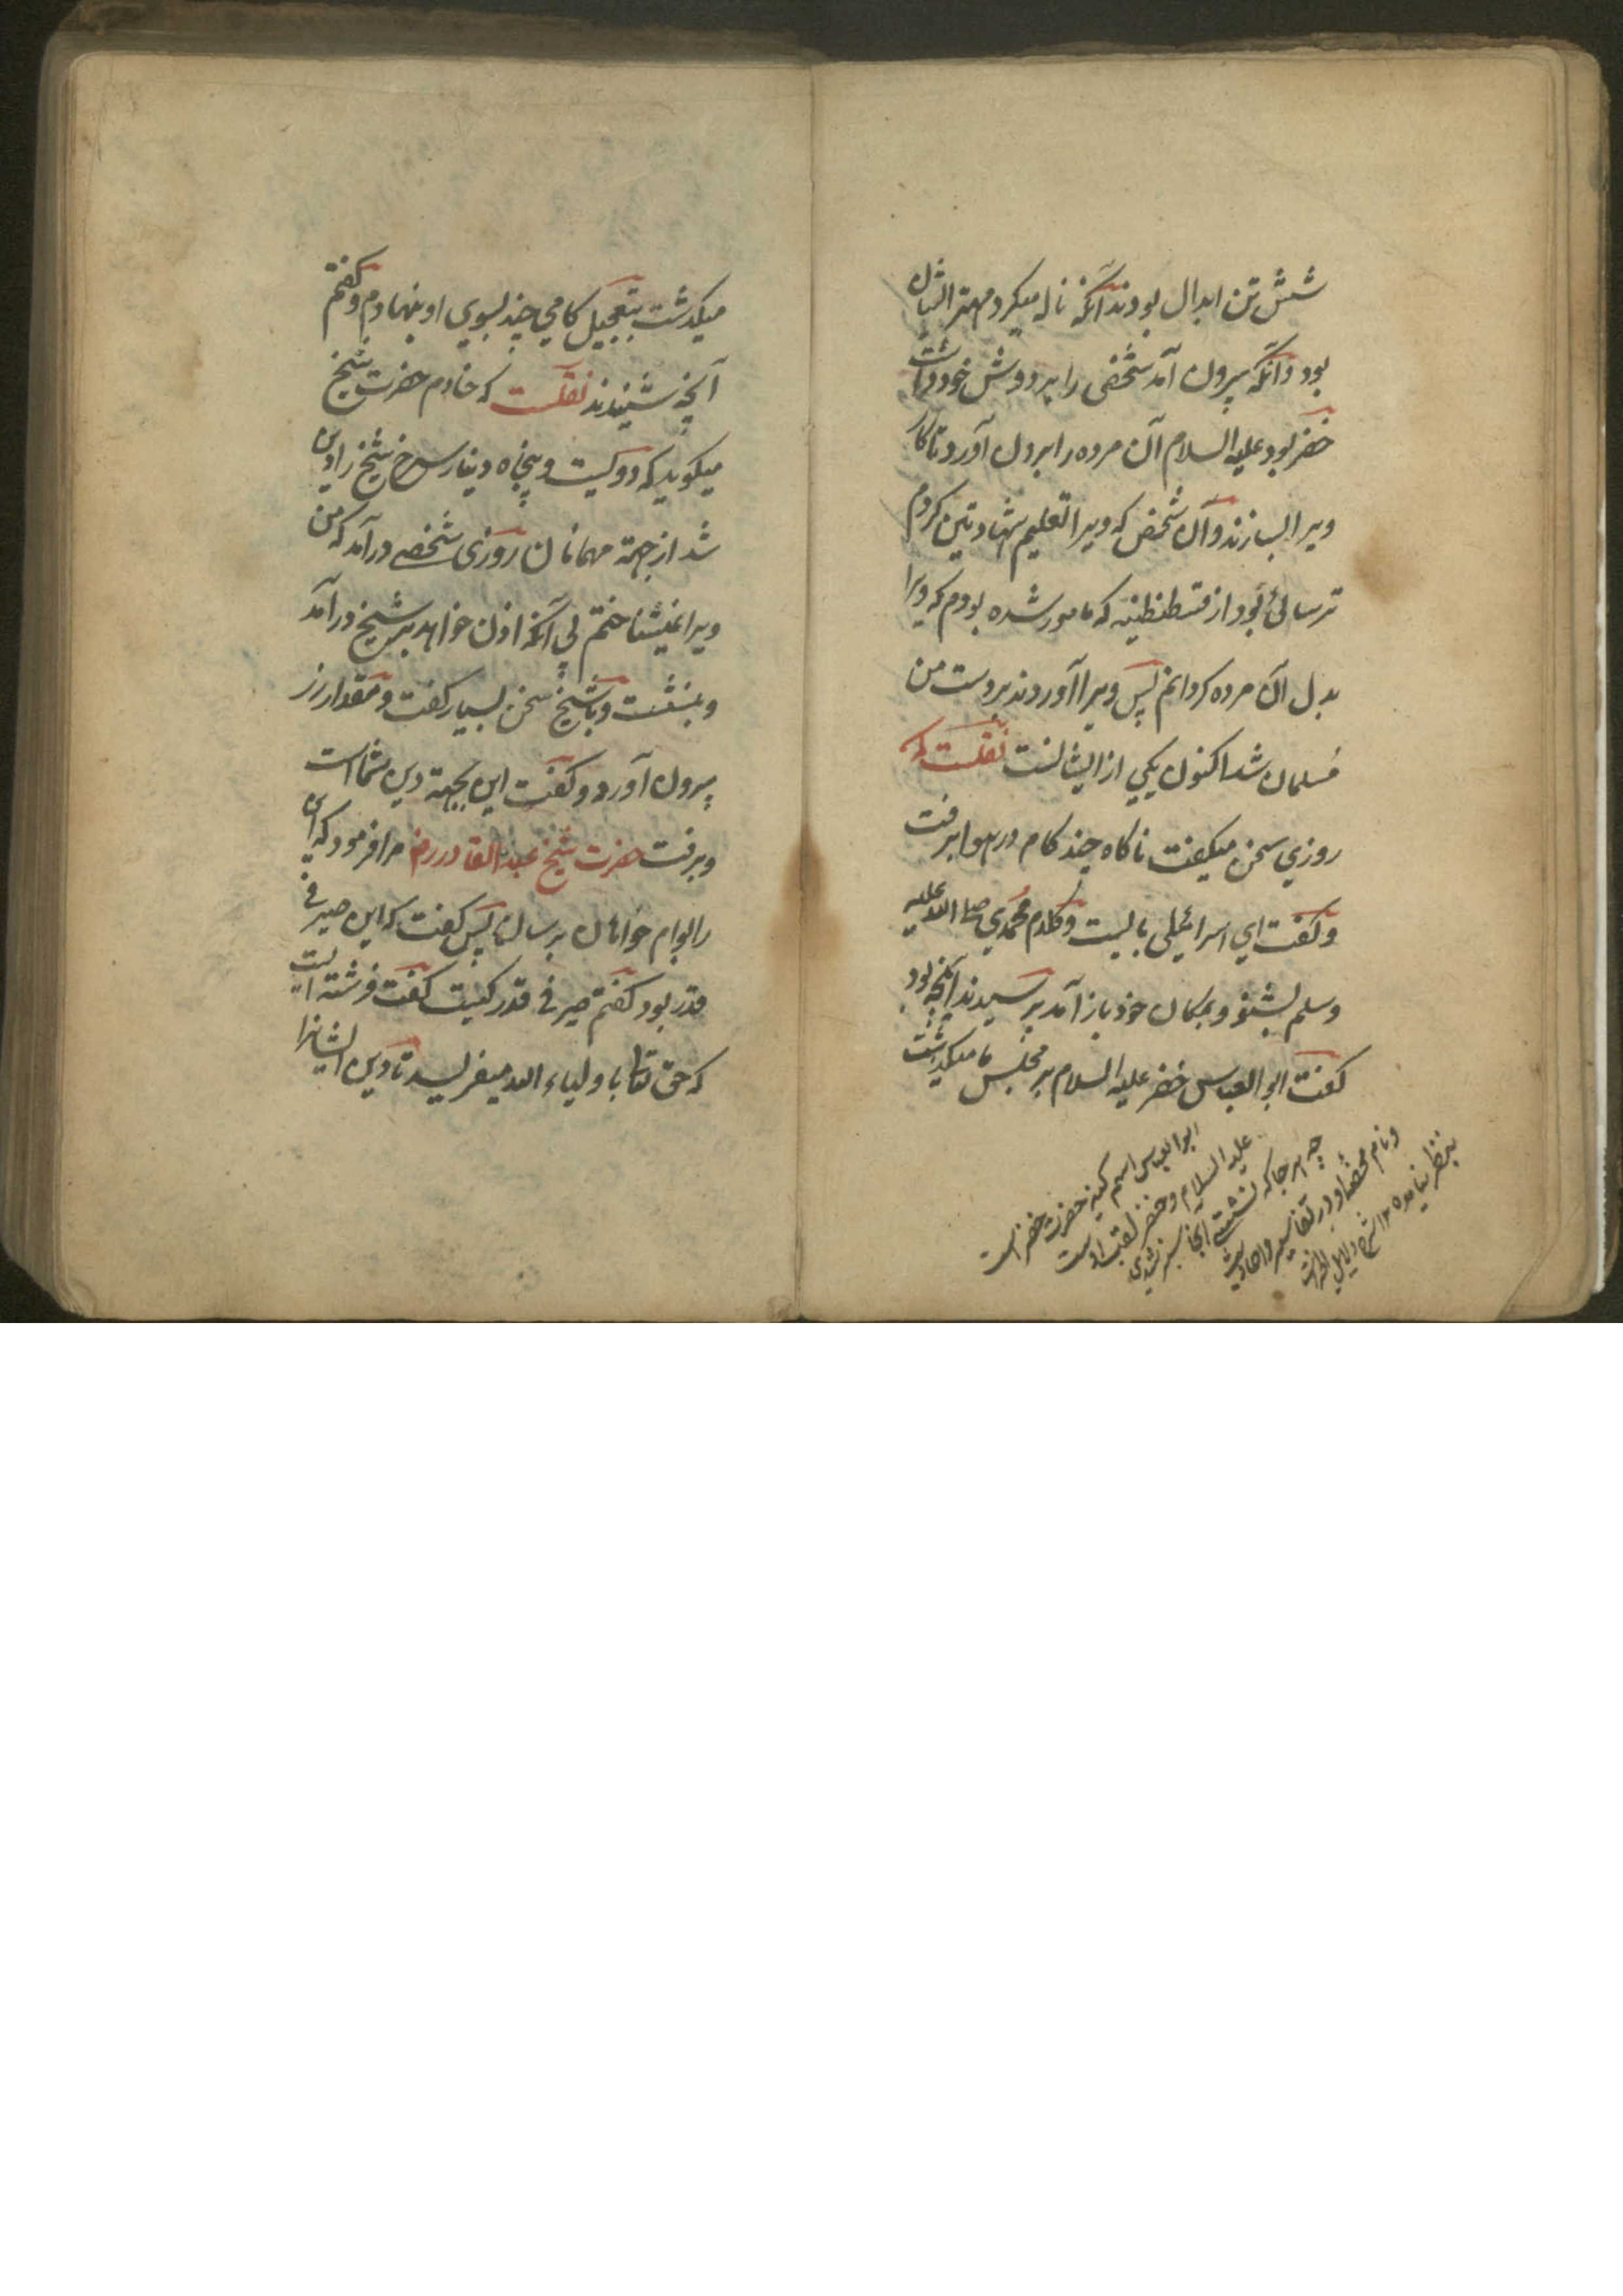 شش تن ابدال بودند آنکه ناله میکرد مهتر ایشان
بود و آنکه بیرون آمد شخصی را بر دوش خود داشت
خضر بود علیه السلام آن مرده را بیرون آورد تا کار
ویرا بسازند و آن شخص که ویرا تعلیم شهادتین کردم
ترسائی بود از قسطنطنیه که مامور شده بودم که ویرا
بدل آن مرده کردانم پس ویرا آوردند بر دست من
مسلمان شد اکنون یکی از ایشانست نقلست که
روزی سخن میکفت ناکاه چند کام در هوا برفت
و کفت ای اسرائیلی بایست و کلام محمدی صلی الله علیه
وسلم بشنو و بمکان خود باز آمد پرسیدند آنچه بود
کفت ابوالعباس خضر علیه السلام بر مجلس ما میکذشت
ابوالعباس اسم کنیه حضرت خضر است
علیه السلام و خضر لقب اوست
چه هر جا که نشستی آنجا سبز شدی
و نام مخصاو در تفاسیر و احادیث
بنظر نیامده ۱۲ شرح دلایل الخیرات
میکذشت بتعجیل کامی چند بسوی او بنهادم و کفتم
آنچه شنیدند نقلست که خادم حضرت شیخ
میکوید که دویست و پنجاه دینار سرخ شیخ را وین
شد از جهة مهمانان روزی شخصی در آمد که من
ویرا نمیشناختم بی آنکه اذن خواهد بر شیخ در آمد
و بنشست و با شیخ سخن بسیار کفت و مقدار زر
بیرون آورد و کفت این بجهة دین شما است
و برفت حضرت شیخ عبد القادر رض مرا فرمود که این
را بوام خواهان برسان پس کفت که این صیرفی
قدر بود کفتم صیرفی قدر کیست کفت فرشته ایست
که حق تعالی با ولیاء الله میفرستد تا دین ایشانرا